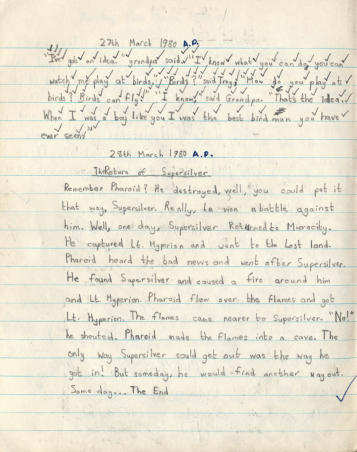 27th March 1980 A.D.
"I've got an idea." grandpa said. "I know what you can do, you can
watch me play at birds." "Birds?" said Tracy, "How do you play at
birds? Birds can fly." "I know," said Grandpa. "That's the idea.
When I was a boy like you I was the best bird man you have
ever seen."
28th March 1980 A.D.
The Return of Supersilver
Remember Pharoid? He destroyed, well, you could put it
that way, Supersilver. Really, he won a battle against
him. Well, one day, Supersilver Returned to Microcity.
He captured Lt. Hyperion and went to the Lost land.
Pharoid heard the bad news and went after Supersilver.
He found Supersilver and caused a fire around him
and Lt. Hyperion. Pharoid flew over the flames and got
Lt. Hyperion. The flames came nearer to Supersilver. "No!"
he shouted. Pharoid made the flames into a cave. The
only way Supersilver could get out was the way he
got in! But someday, he would find another way out.
Some day... The End